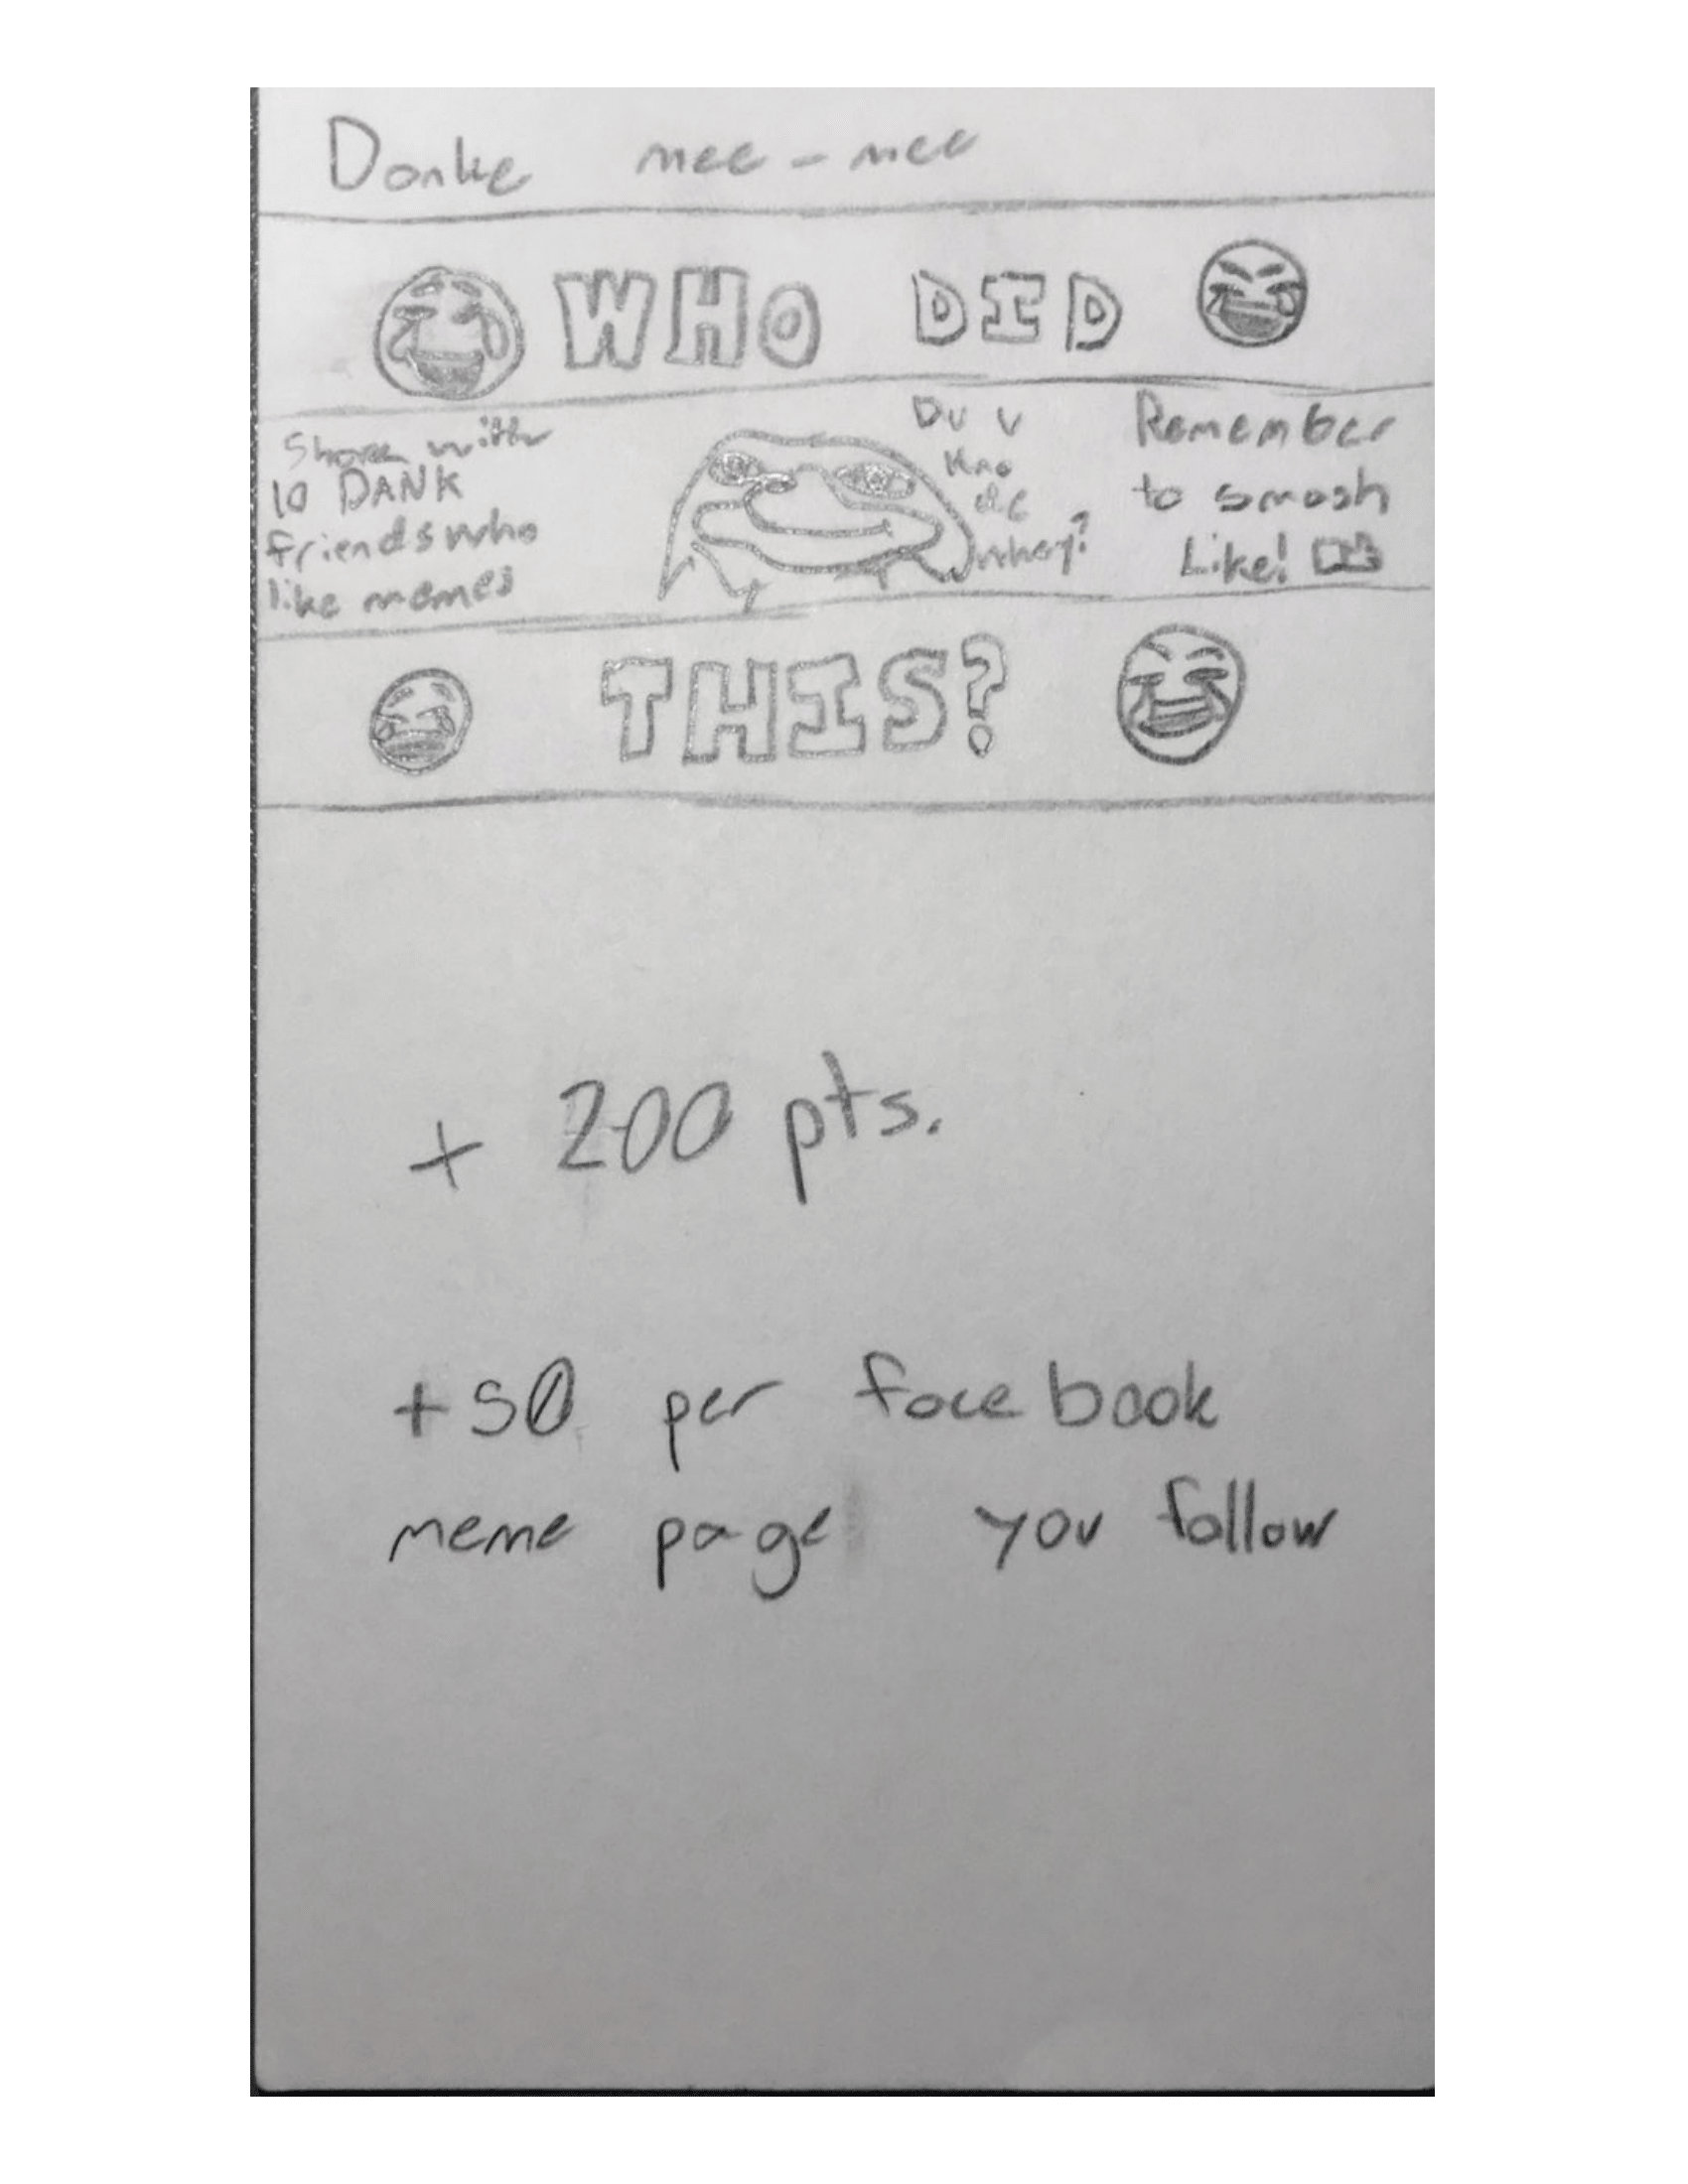 Danke mee-mee
WHO DID
Share with
10 DANK
friends who
like memes
Du u
Kno
de
whey?
Remember
to smash
Like!
THIS?
+ 200 pts.
+50 per facebook
meme page you follow